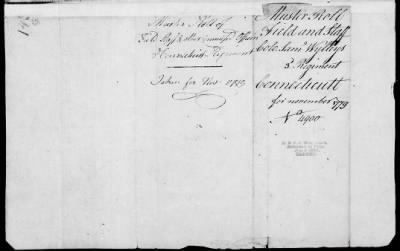 Muster Roll of
Field Staff & other Commiss'd Officers
Connecticut Regiment
Taken for Nov. 1779
Muster Roll
Field and Staff
Colo. Saml Wyllys
3d Regiment
Connecticutt
for november 1779
No 4900